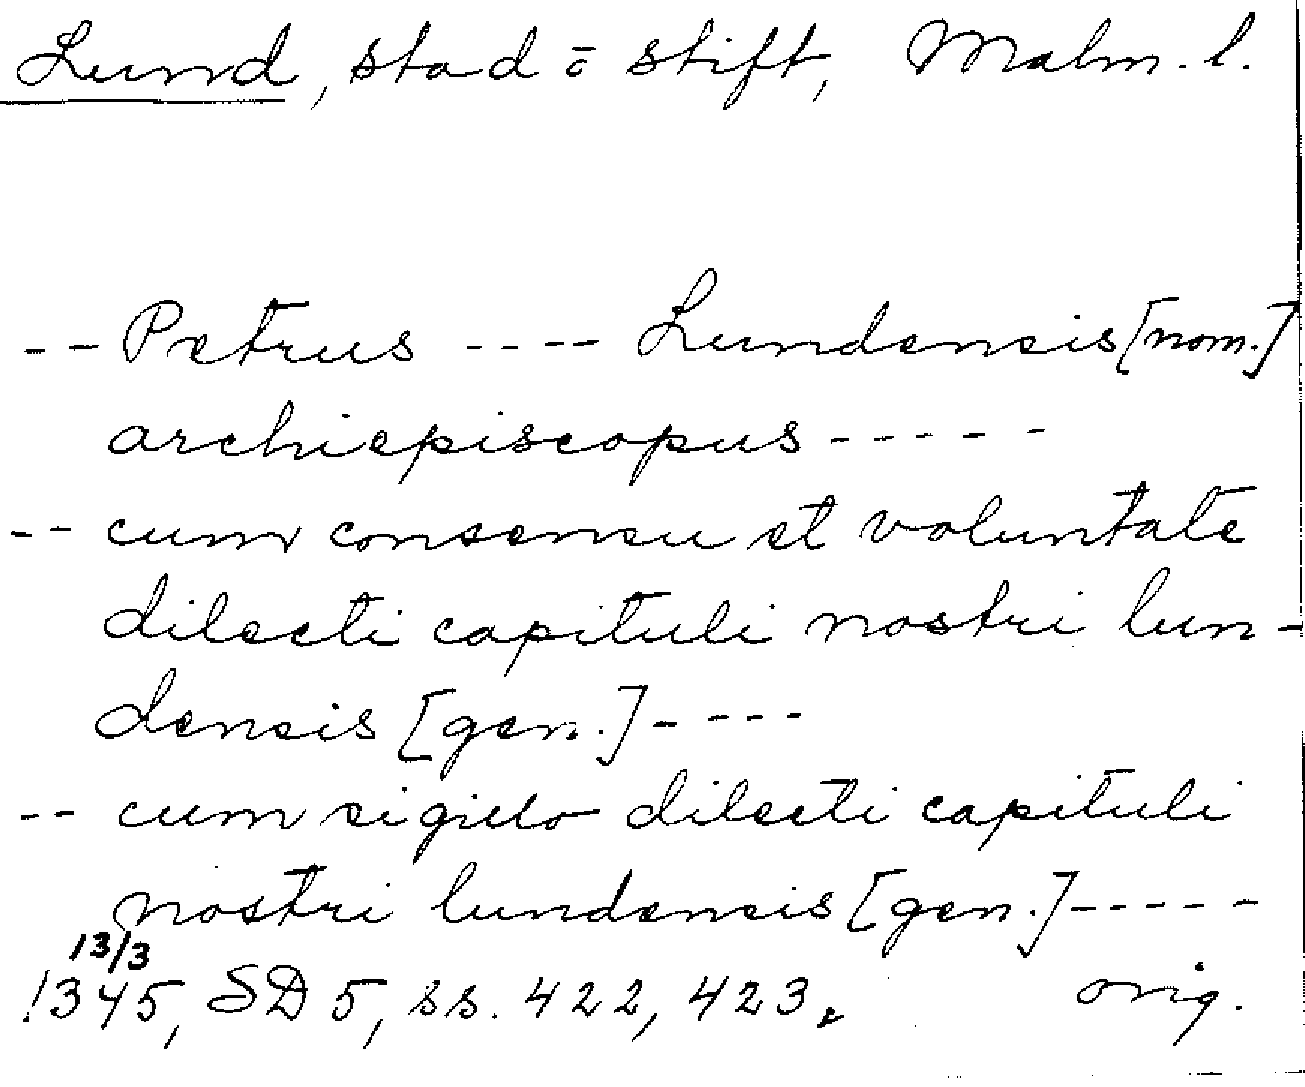 Lund, stad o stift, Malm. l.
-- Petrus ---- Lundensis [nom.]
archiepiscopus -----
-- cum consensu et voluntate
dilecti capituli nostri lun-
densis [gen.] ----
-- cum sigillo dilecti capituli
nostri lundensis [gen.] -----
13/3
1345, SD 5, ss. 422, 423. orig.